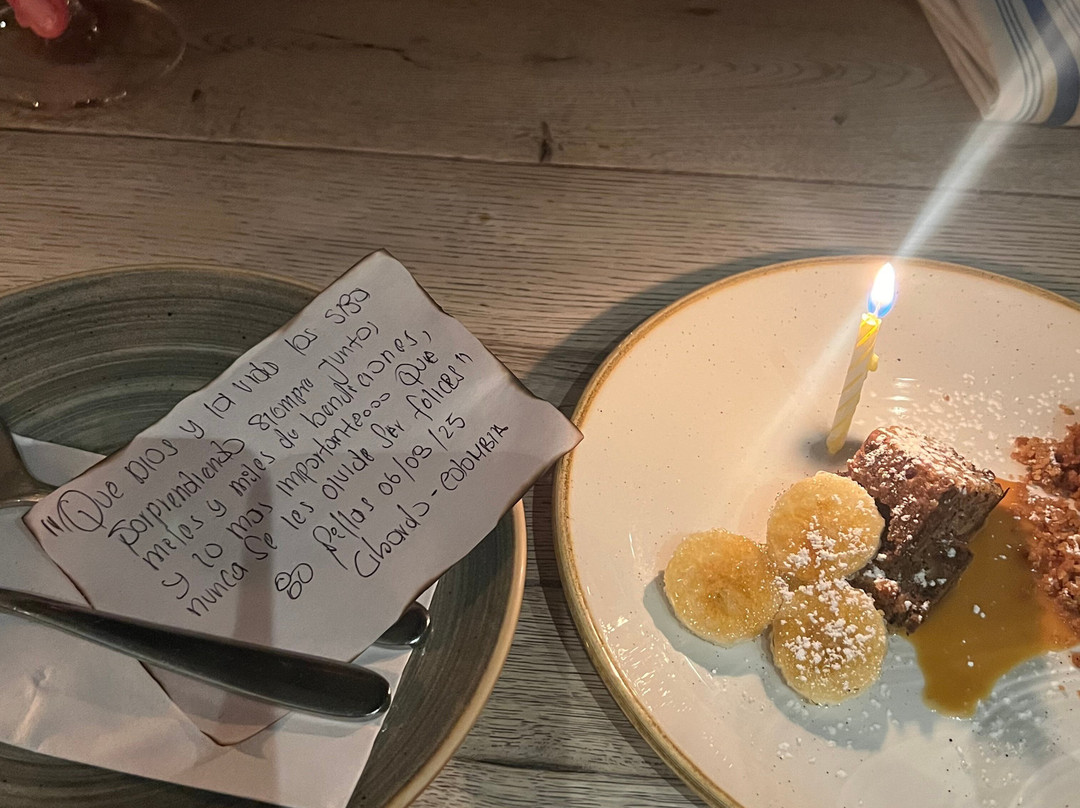 "Que Dios y la vida los siga
sorprendiendo siempre juntos,
miles y miles de bendiciones,
y lo mas importante... Que
nunca se les olvide ser felices"
06/08/25
- COLOMBIA